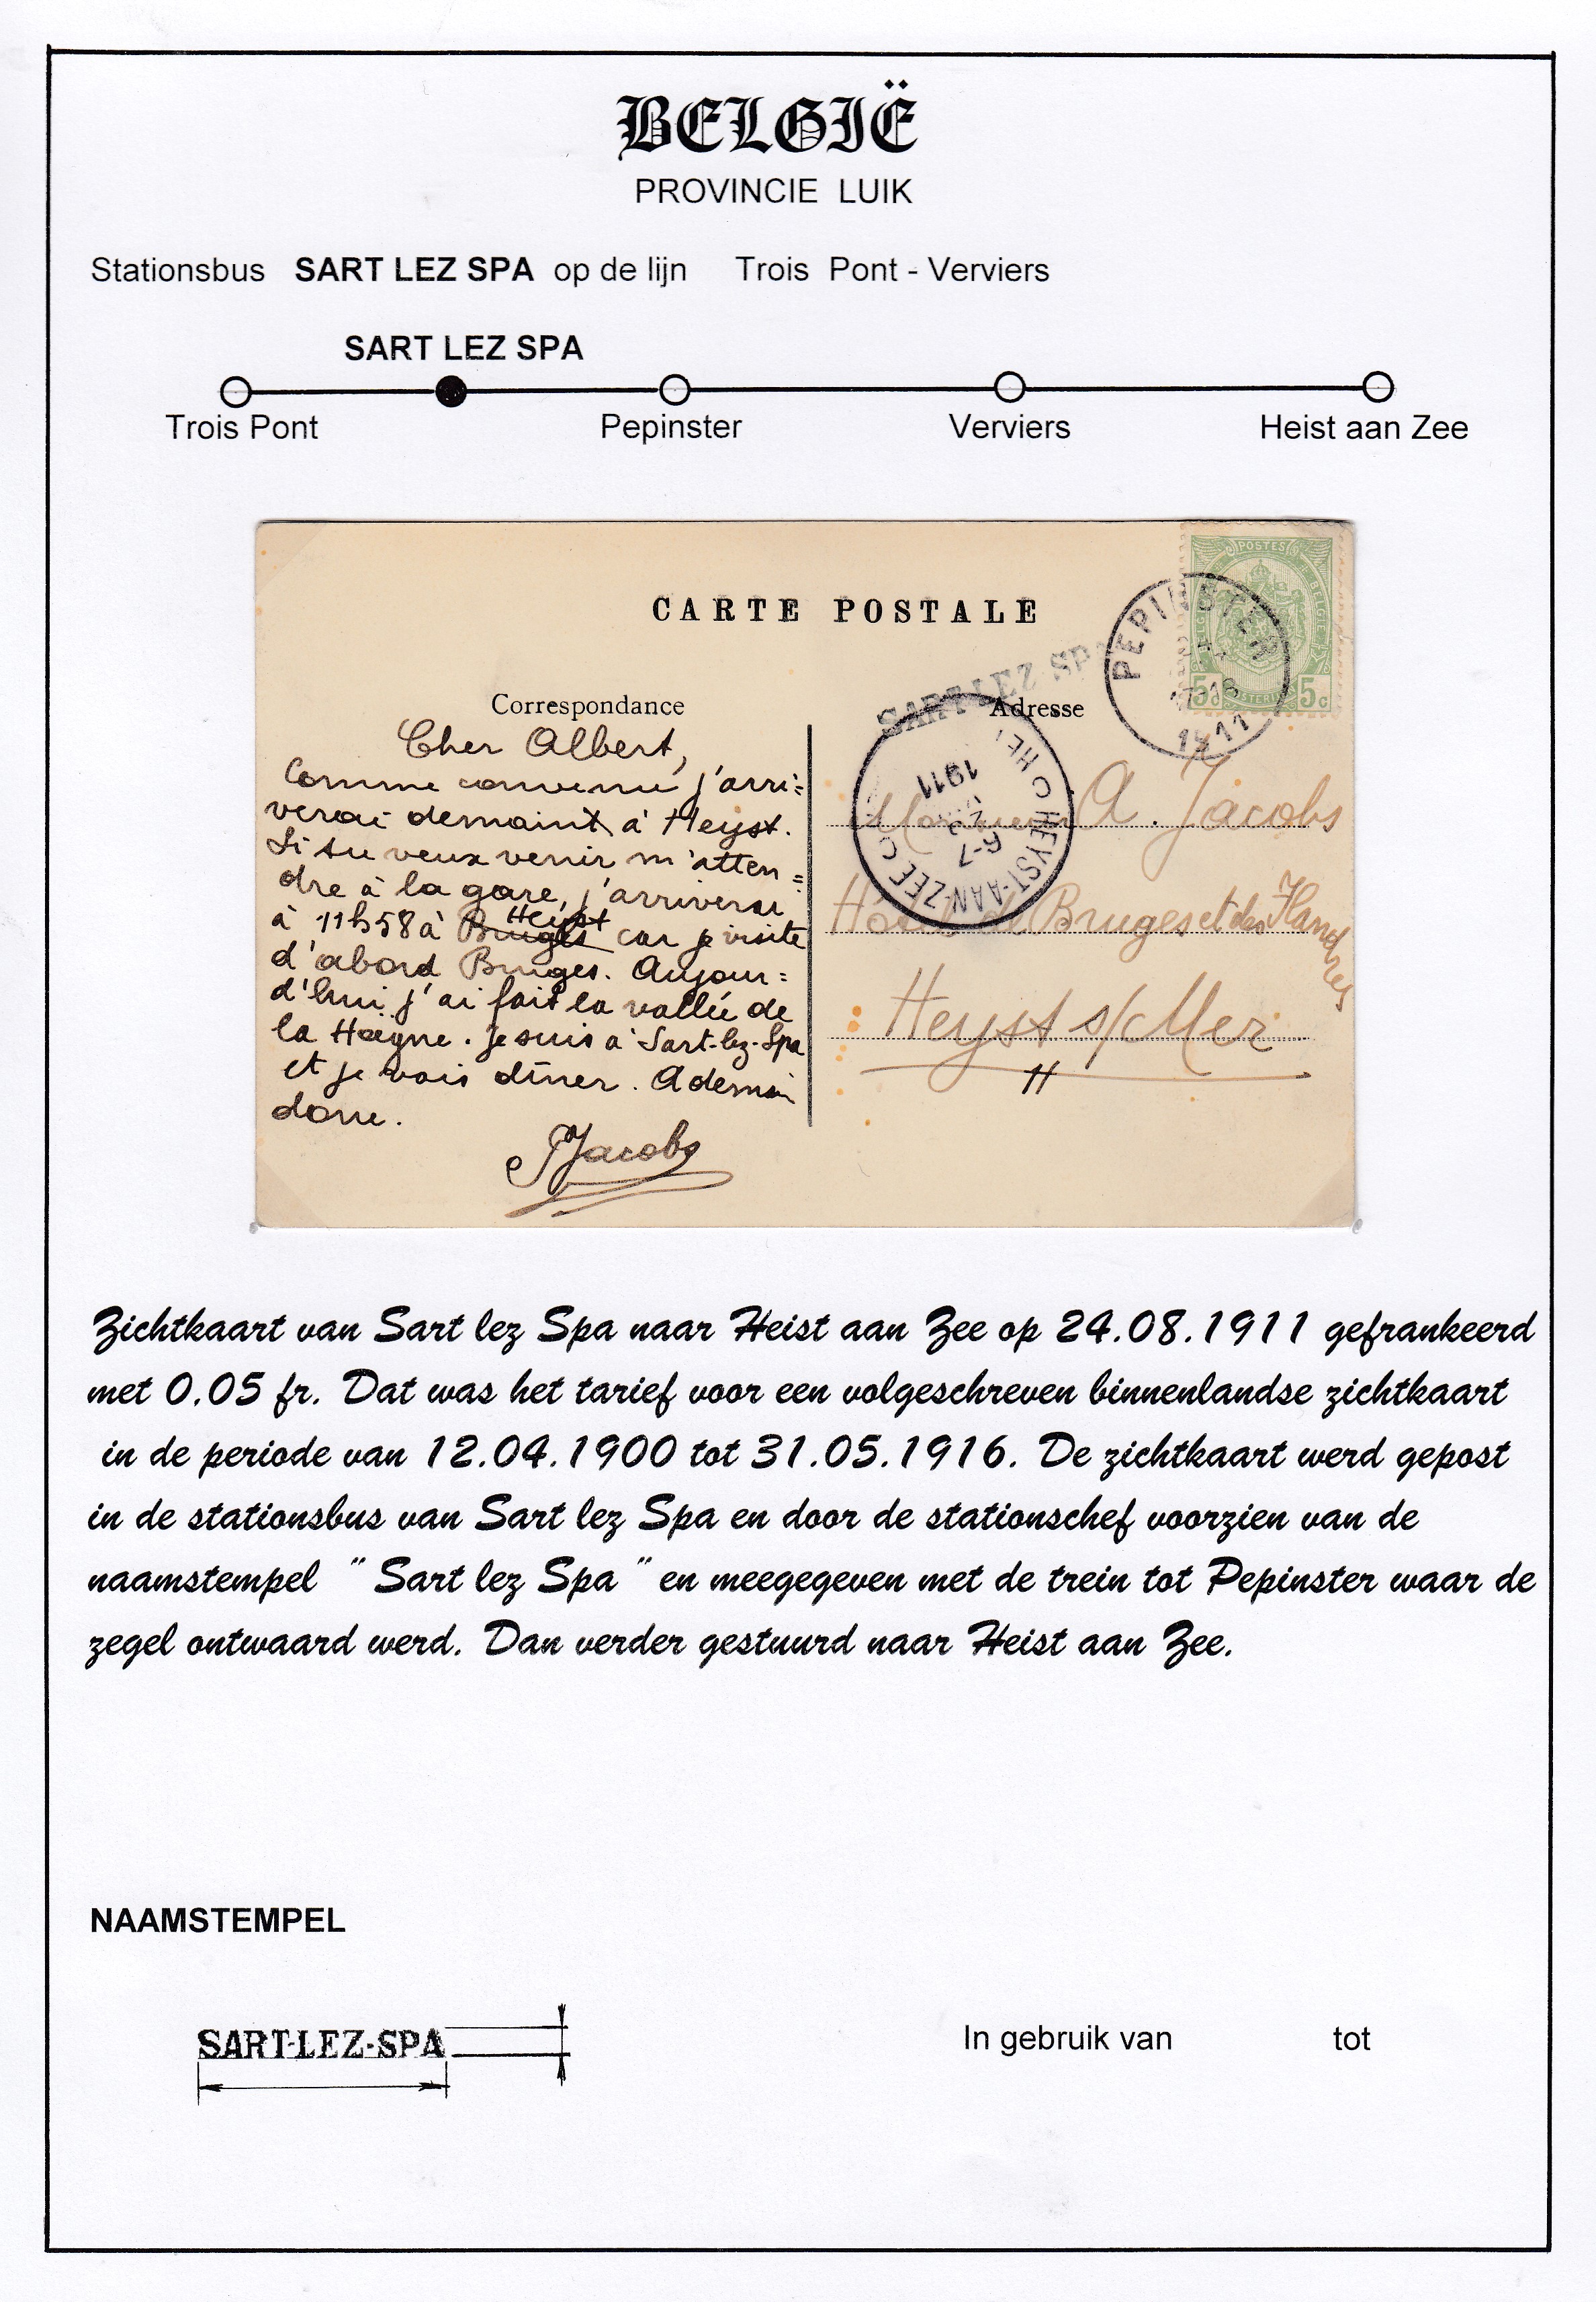 BELGIË
PROVINCIE LUIK
Stationsbus SART LEZ SPA op de lijn Trois Pont - Verviers
SART LEZ SPA
Trois Pont Pepinster Verviers Heist aan Zee
POSTES
CARTE POSTALE
PEPINSTER
17-18
1911
5c
SART-LEZ-SPA
Correspondance
Adresse
Cher Albert,
Comme convenu j'arri=
verai demain à Heyst.
Si tu veux venir m'atten=
dre à la gare, j'arriverai
à 11h58 à Bruges Heyst car je visite
d'abord Bruges. Aujour=
d'hui j'ai fait la vallée de
la Hoëgne. Je suis à Sart-lez-Spa
et je vais dîner. A demain
donc.
Jacobs
HEYST-AAN-ZEE
6-7
1911
Monsieur A. Jacobs
Hôtel de Bruges et des Flandres
Heyst s/Mer
Zichtkaart van Sart lez Spa naar Heist aan Zee op 24.08.1911 gefrankeerd
met 0.05 fr. Dat was het tarief voor een volgeschreven binnenlandse zichtkaart
in de periode van 12.04.1900 tot 31.05.1916. De zichtkaart werd gepost
in de stationsbus van Sart lez Spa en door de stationschef voorzien van de
naamstempel " Sart lez Spa " en meegegeven met de trein tot Pepinster waar de
zegel ontwaard werd. Dan verder gestuurd naar Heist aan Zee.
NAAMSTEMPEL
SART-LEZ-SPA
In gebruik van tot